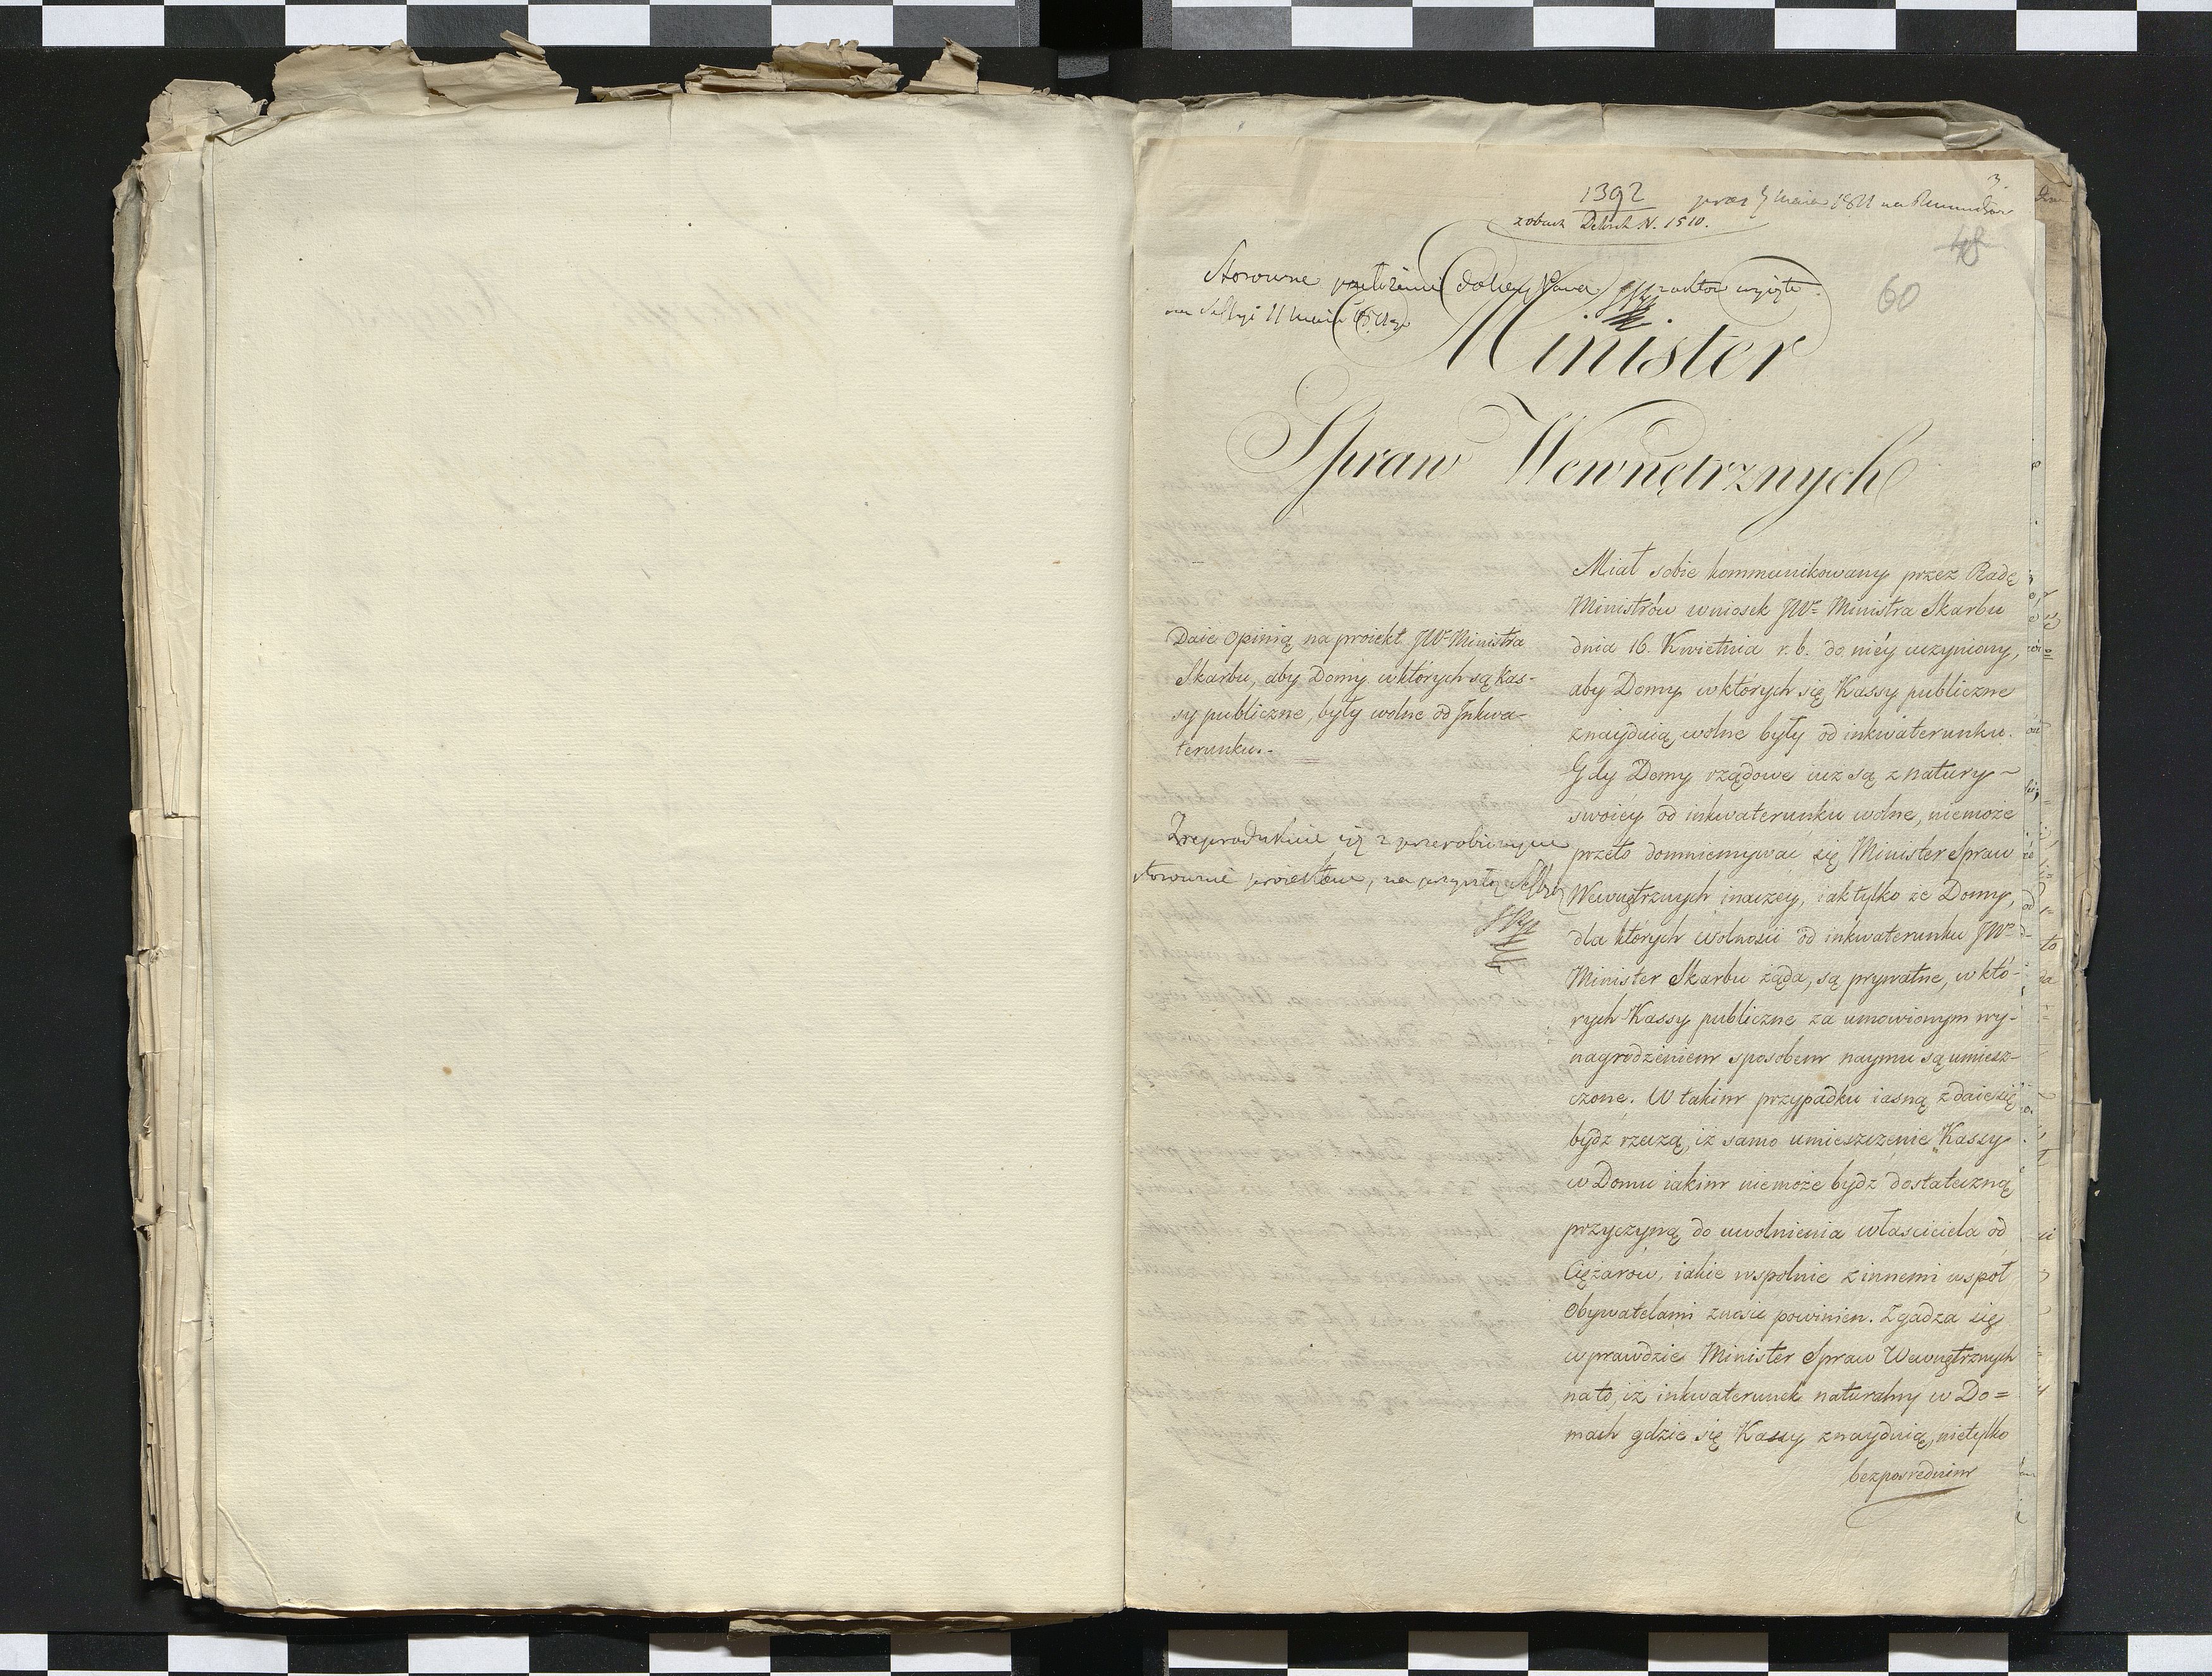 1392
zobacz Dekret N. 1510.
3.
48
60
Stosowne
Minister
Spraw Wewnętrznych
Daie opinią na proiekt JWº Ministra
Skarbu, aby Domy w których są Kas-
sy publiczne, były wolne od Inkwa-
terunku.-
Zreprodukuie się z przerobionym
stosownie proiektem, na przyszłą Sessyą
Miał sobie kommunikowany przez Radę
Ministrów wniosek JWº Ministra Skarbu
dnia 16. Kwietnia r. b. do niéy uczyniony,
aby Domy w których się Kassy publiczne
znayduią, wolne były od inkwaterunku.
Gdy Domy rządowe iuż są z natury
swoiéy od inkwaterunku wolne, niemoże
przeto domniemywać się Minister Spraw
Wewnętrznych inaczéy, iak tylko że Domy,
dla których wolności od inkwaterunku JWº
Minister Skarbu żąda, są prywatne, w któ-
rych Kassy publiczne za umowionym wy-
nagrodzeniem sposobem naymu są umiesz-
czone. W takim przypadku iasną zdaie się
bydź rzeczą, iż samo umieszczenie Kassy
w Domu iakim niemoże bydź dostateczną
przyczyną do uwolnienia właściciela od
Ciężarów, iakie wspolnie z innemi wspoł
Obywatelami znosić powinien. Zgadza się
wprawdzie Minister Spraw Wewnętrznych
na to, iż inkwaterunek naturalny w Do=
mach gdzie się Kassy znayduią, nietylko
bezpośrednim